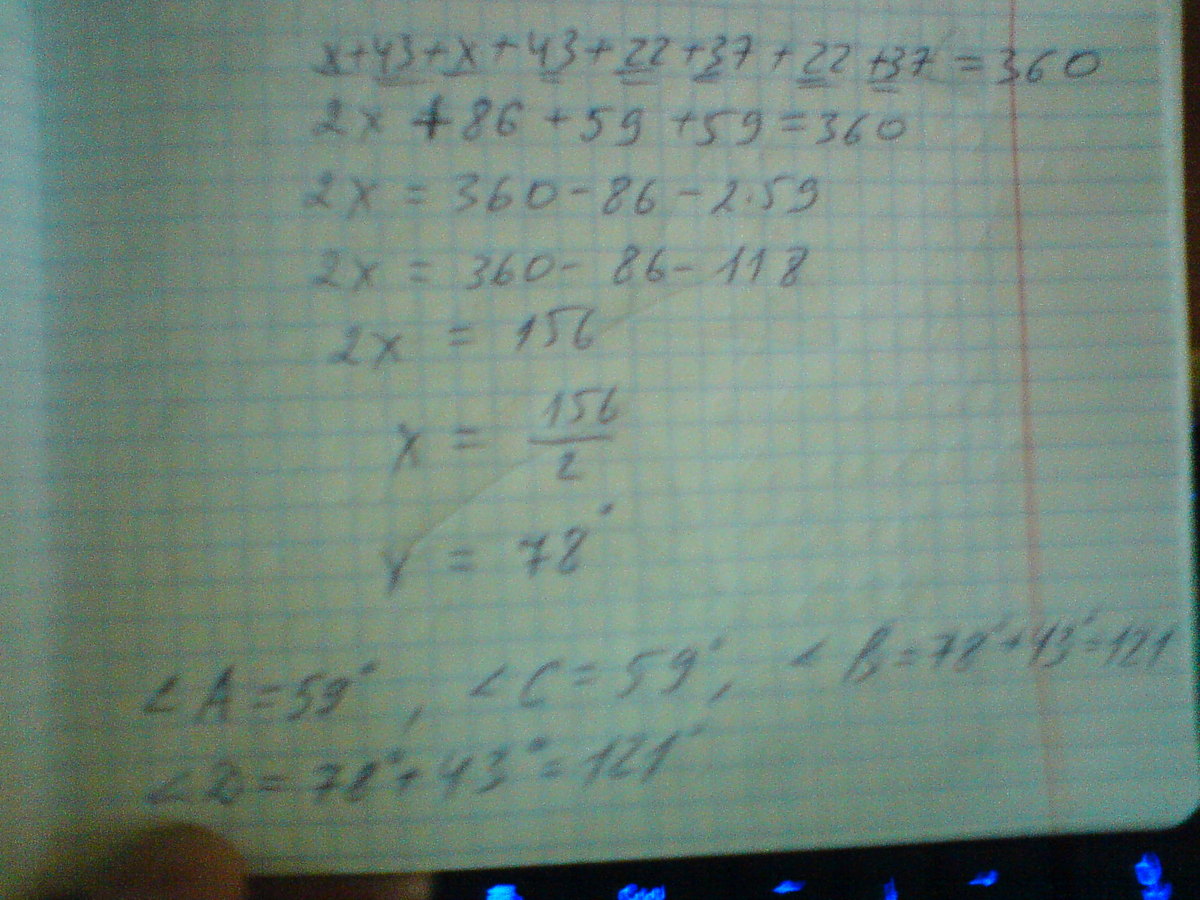 x+43+x+43+22+37+22+37=360
2x+86+59+59=360
2x=360-86-2·59
2x=360-86-118
2x=156
x=156/2
x=78°
∠A=59°, ∠C=59°, ∠B=78°+43°=121
∠D=78°+43°=121°